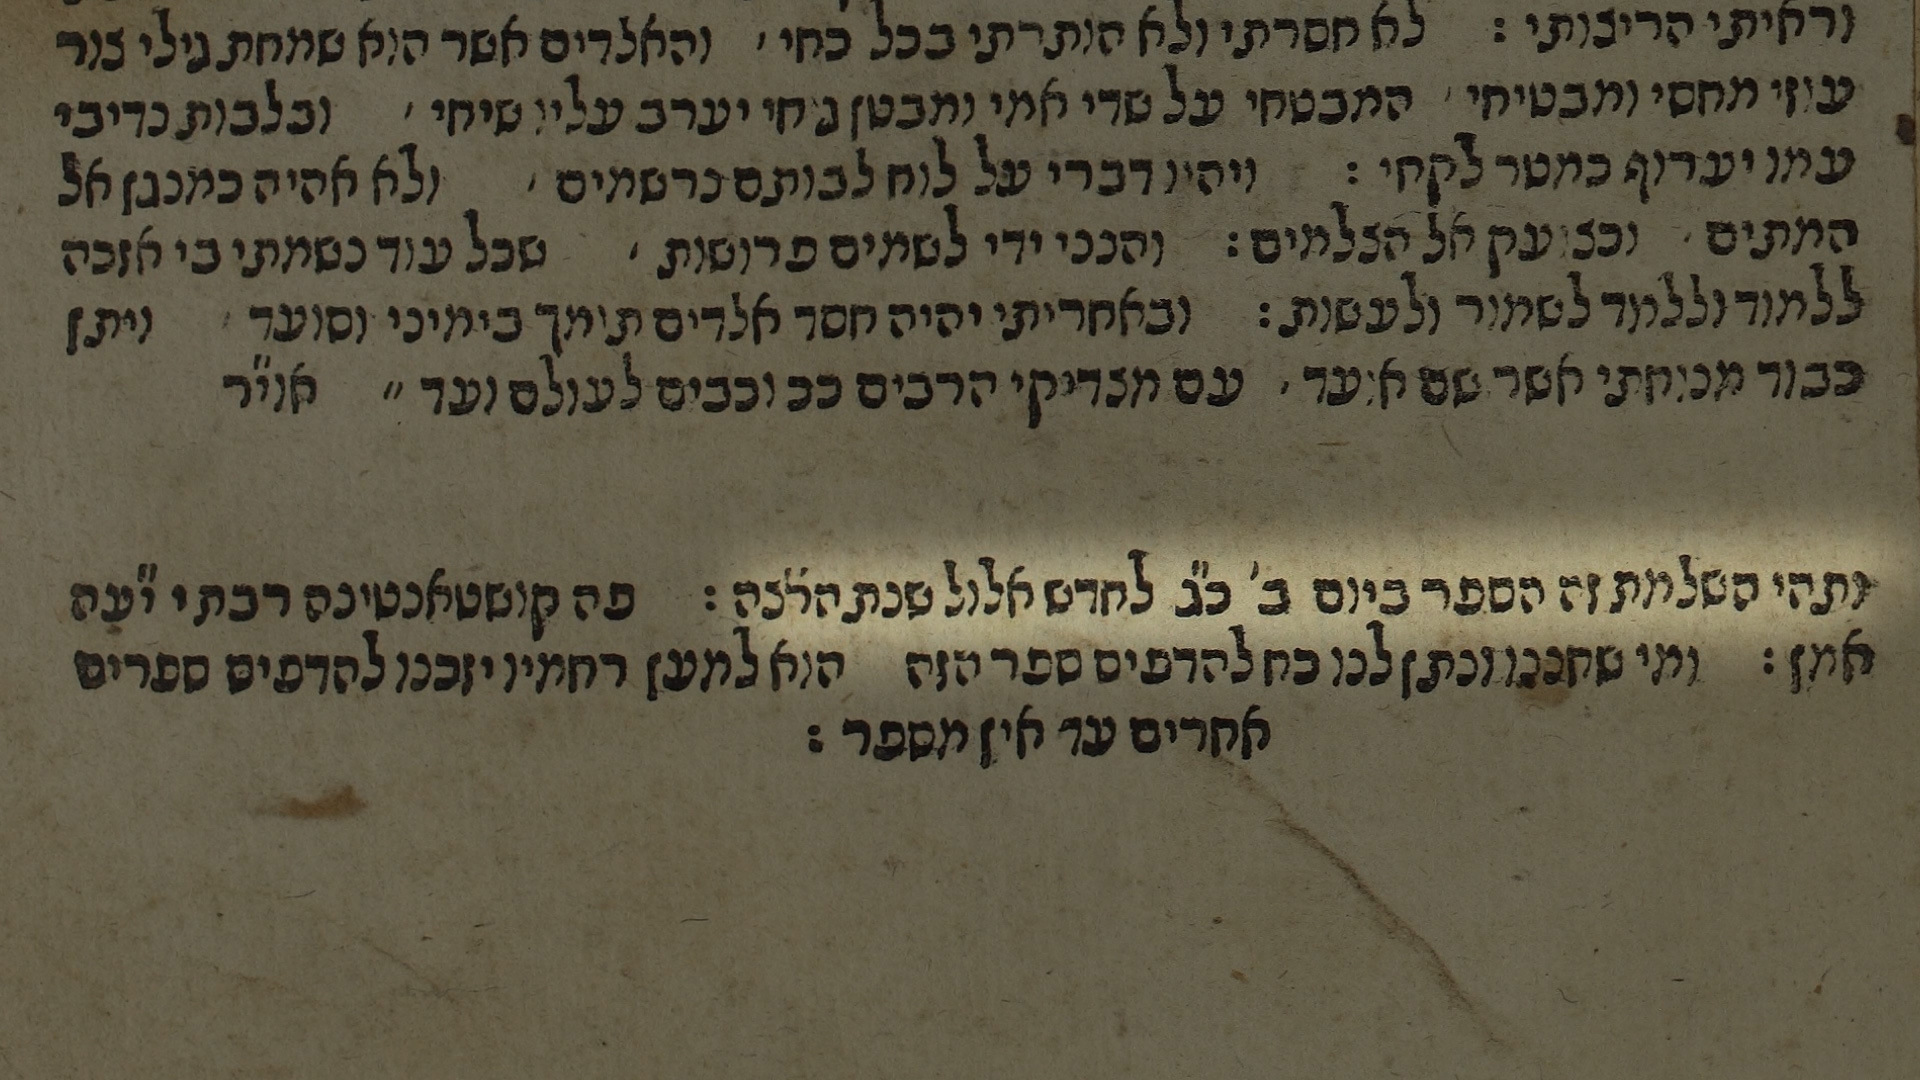 וראיתי הריצותי : לא חסרתי ולא הותרתי בכל כחי ׳ והאלדים אשר הוא שמחת גילי צור
עוזי מחסי ומבטיחי ׳ המבטחי על שדי אמי ומבטן גוחי יערב עליו שיחי ׳ ובלבות נדיבי
עמו יערוף כמטר לקחי : ויהיו דברי על לוח לבותם נרשמים ׳ ולא אהיה כמנגן אל
המתים ׳ וכצועק אל הצלמים : והנני ידי לשמים פרושות ׳ שכל עוד נשמתי בי אזכה
ללמוד וללמד לשמור ולעשות : ובאחריתי יהיה חסד אלדים תומך בימיני וסועד ׳ ויתן
כבוד מנוחתי אשר שם איעד ׳ עם מצדיקי הרבים ככוכבים לעולם ועד ״ אוי״ר
ותהי השלמת זה הספר ביום ב׳ כ״ג לחדש אלול שנת הר״צה : פה קושטאנטינה רבתי י״עה
אמן : ומי שחננו ונתן לנו כח להדפיס ספר הזה הוא למען רחמיו יזכנו להדפיס ספרים
אחרים עד אין מספר :